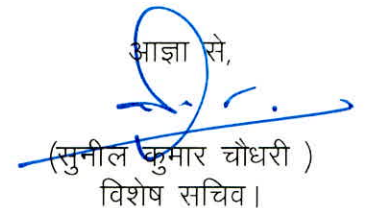 आज्ञा से,
(सुनील कुमार चौधरी )
विशेष सचिव।